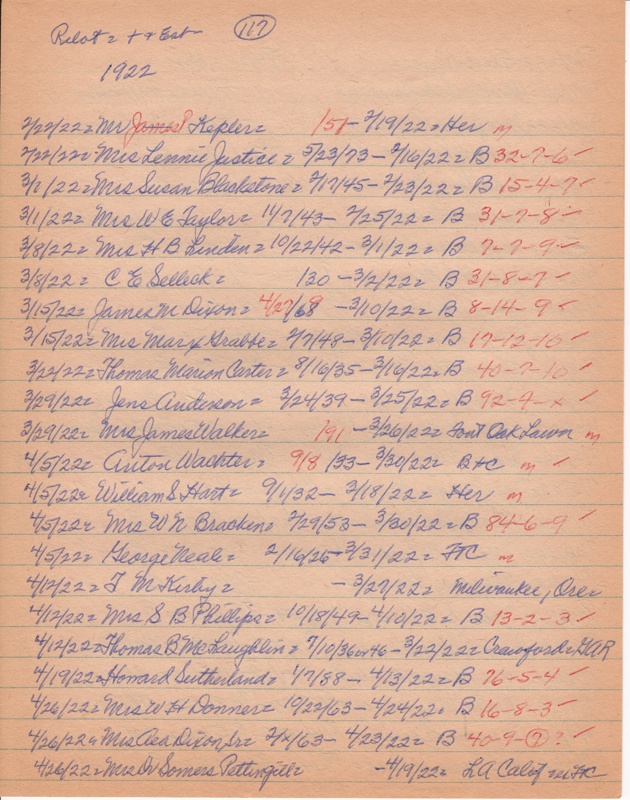 Pilot = + & Est 117
1922
2/22/22 = Mr James P Kepler = /51 - 2/19/22 = Her m
2/22/22 = Mrs Lennie Justice = 5/23/73 - 2/16/22 = B 32-7-6 ✓
3/1/22 = Mrs Susan Blackstone = 2/17/45 - 2/23/22 = B 15-4-7 ✓
3/1/22 = Mrs W E Taylor = 11/7/43 - 2/25/22 = B 31-7-8 ✓
3/8/22 = Mrs H B Linden = 10/22/42 - 3/1/22 = B 7-7-9 ✓
3/8/22 = C E Selleck = /30 - 3/2/22 = B 31-8-7 ✓
3/15/22 = James M Dixon = 4/27/68 - 3/10/22 = B 8-14-9 ✓
3/15/22 = Mrs Mary Grabbe = 2/7/48 - 3/10/22 = B 17-12-10 ✓
3/22/22 = Thomas Marion Carter = 8/16/35 - 3/16/22 = B 40-7-10 ✓
3/29/22 = Jens Anderson = 3/24/39 - 3/25/22 = B 92-4-x ✓
3/29/22 = Mrs James Walker = /91 - 3/26/22 = Oak Lawn m
4/5/22 = Anton Wachter = 9/8/33 - 3/30/22 = B & C m ✓
4/5/22 = William S Hart = 9/1/32 - 3/18/22 = Her m
4/5/22 = Mrs W N Bracken = 2/29/53 - 3/30/22 = B 84-6-9 ✓
4/5/22 = George Neale = 2/16/26 - 3/31/22 = FtC m
4/12/22 = F M Kirby = - 3/27/22 = Milwaukee, Ore =
4/12/22 = Mrs S B Phillips = 10/18/49 - 4/10/22 = B 13-2-3 ✓
4/12/22 = Thomas B McLaughlin = 7/10/36 or 46 - 3/22/22 = Crawford = GAR
4/19/22 = Howard Sutherland = 1/7/88 - 4/13/22 = B 76-5-4 ✓
4/26/22 = Mrs W H Donner = 10/22/63 - 4/24/22 = B 16-8-3 ✓
4/26/22 = Mrs Asa Dixon Sr = 2/x/63 - 4/23/22 = B 40-9-? ? ✓
4/26/22 = Mrs Dr Somers Pettingill = - 4/19/22 = LA Calif = FtC